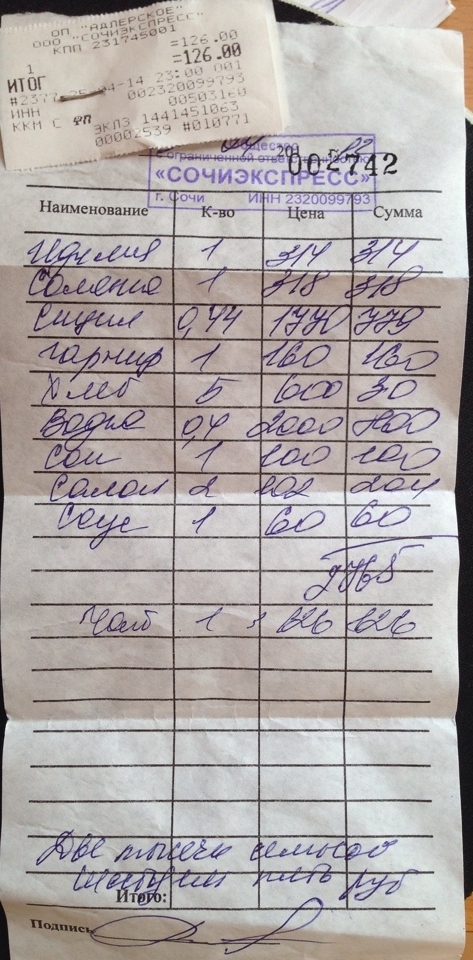 ОП "АДЛЕРСКОЕ"
ООО "СОЧИЭКСПРЕСС"
КПП 231745001
=126.00
1 =126.00
ИТОГ
#2377 25-04-14 23:00 001
ИНН 002320099793
00503160
ККМ С ФП ЭКЛЗ 1441451063
00002539 #010771
Общество
с ограниченной ответственностью
00-742
«СОЧИЭКСПРЕСС»
г. Сочи ИНН 2320099793
Наименование К-во Цена Сумма
1 314 314
Солянка 1 318 318
0,44 1770 779
гарнир 1 160 160
Хлеб 5 600 30
Водка 0,4 2000 800
Сок 1 100 100
Салат 2 102 204
Соус 1 60 60
2765
Чай 1 126 126
Две тысячи семьсот
шестьдесят пять руб
Итого:
Подпись